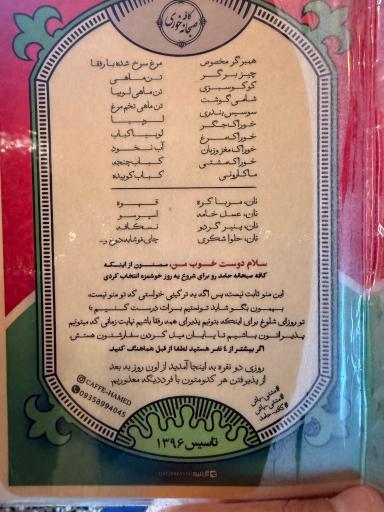 کافه
صبحانه خوری
همبرگر مخصوص
چیز برگر
کوکوسبزی
شامی گوشت
سوسیس بندری
خوراک جگر
خوراک مرغ
خوراک مغز و زبان
خوراک مشتی
ماکارونی
مرغ سرخ شده با رفقا
تن ماهی
تن ماهی لوبیا
تن ماهی تخم مرغ
لوبیا
لوبیا کباب
آب نخود
کباب چنجه
کباب کوبیده
نان، مربا کره
نان، عسل خامه
نان، پنیر گردو
نان، حلوا شکری
قهوه
اسپرسو
نسکافه
چای، نوشابه، دوغ و...
سلام دوست خوب من، ممنون از اینکه
کافه صبحانه حامد رو برای شروع یه روز خوشمزه انتخاب کردی
این منو ثابت نیست، پس اگه یه ترکیبی خواستی که تو منو نیست،
بهمون بگو شاید تونستیم برات درست کنیم
تو روزای شلوغ برای اینکه بتونیم پذیرای همه رفقا باشیم نهایت زمانی که میتونیم
پذیراتون باشیم تا پایان میل کردن سفارشتون هستش
اگر بیشتر از ٤ نفر هستید لطفا از قبل هماهنگ کنید
روزی دو نفره به اینجا آمدید از اون روز به بعد
از پذیرفتن هر کدومتون با فرد دیگه معذوریم
CAFFE-HAMED
09358994045
#مشتی_باش
#کافه_حامد
تاسیس ١٣٩٦